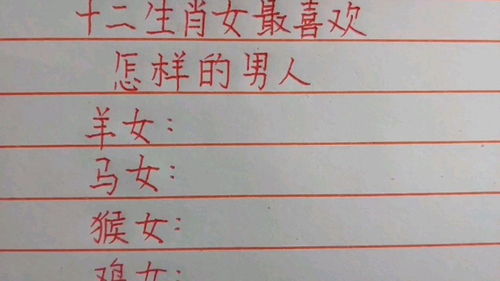 十二生肖女最喜欢
怎样的男人
羊女：
马女：
猴女：
鸡女：